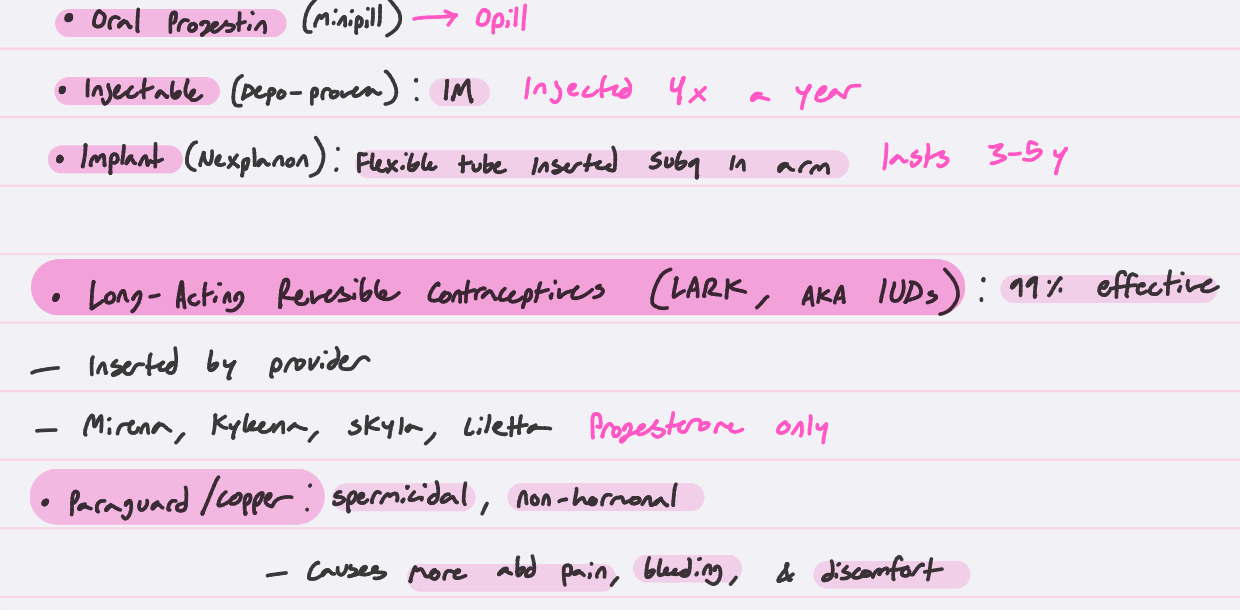 • Oral Progestin (Minipill) → Opill
• Injectable (Depo-provera) : IM Injected 4x a year
• Implant (Nexplanon) : Flexible tube inserted subq in arm lasts 3-5 y
• Long-Acting Reversible Contraceptives (LARK, AKA IUDs) : 99% effective
— Inserted by provider
— Mirena, Kyleena, Skyla, Liletta Progesterone only
• Paraguard/copper : spermicidal, non-hormonal
— Causes more abd pain, bleeding, & discomfort